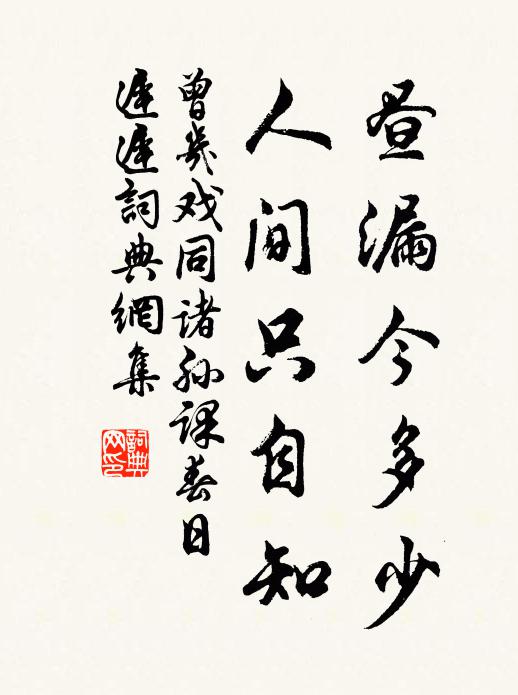 昼漏今多少
人间只自知
曾几戏同诸孙课春日
遲遲詞典網集
詞典
网印